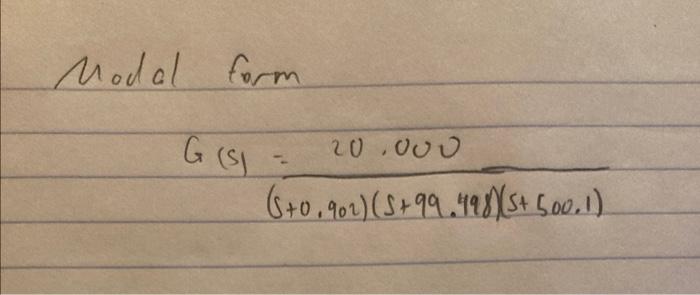 Modal form
G(s) = 20.000
(s+0.902)(s+99.498)(s+500.1)